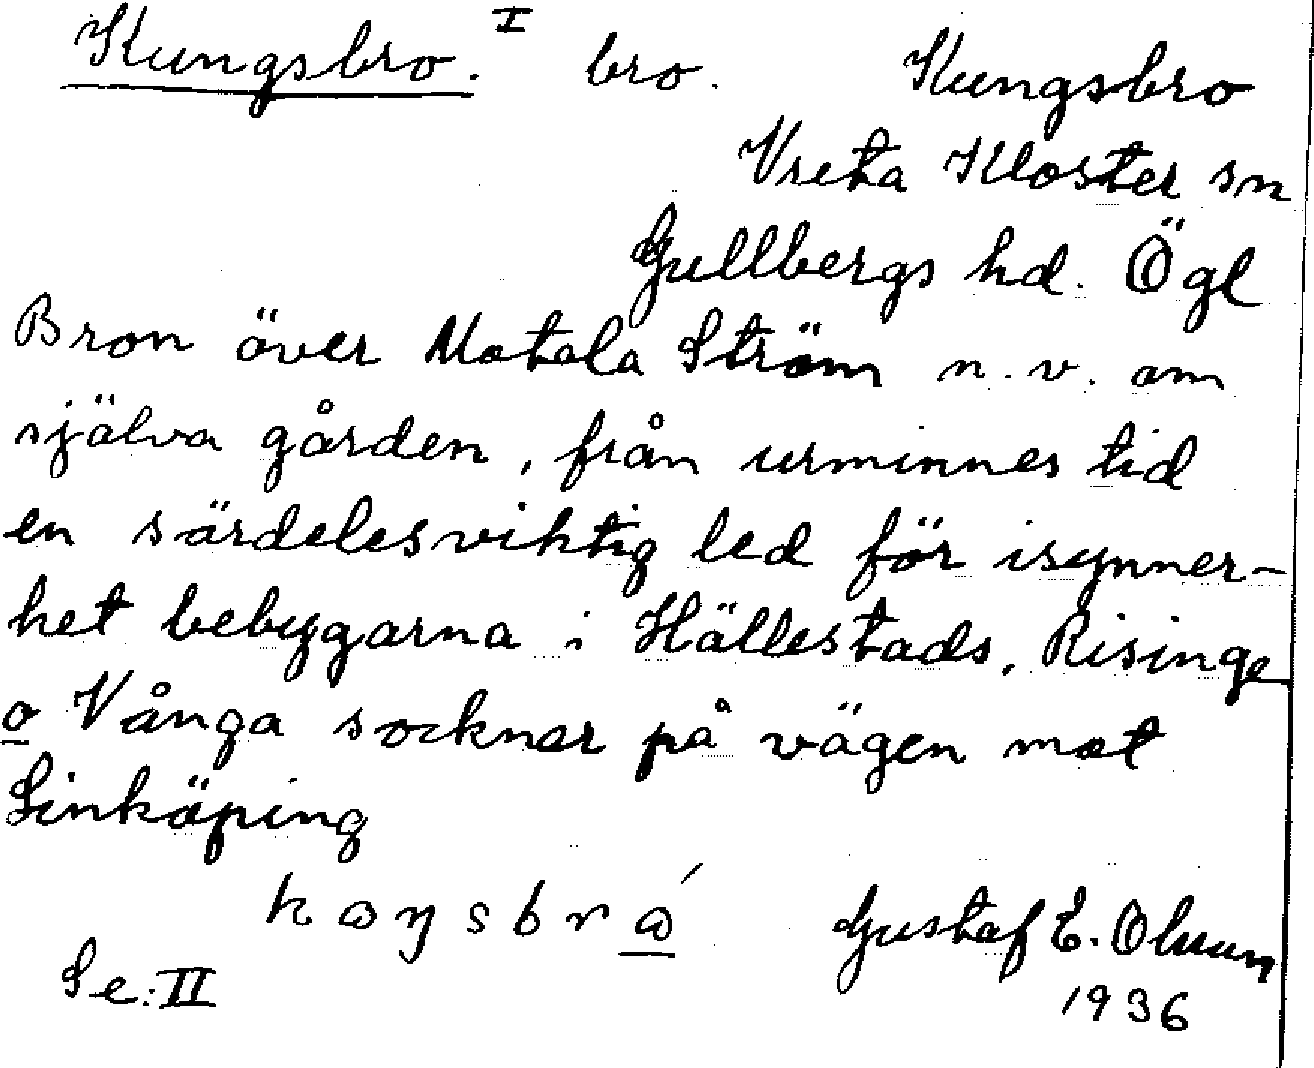 Kungsbro. I bro. Kungsbro
Vreta Kloster sn
Gullbergs hd. Ögl
Bron över Motala Ström n.v. om
själva gården, från urminnes tid
en särdelesviktig led för isynner-
het bebyggarna i Hällestads, Risinge
o Vånga socknar på vägen mot
Linköping
Gustaf E. Olsson
Se: II
1936